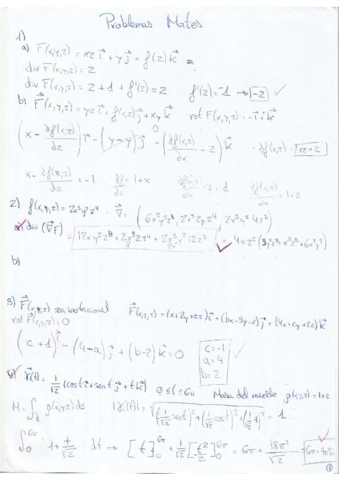 Problemas Mates
1)
a) F(x,y,z) = xz i + y j + f(z) k
div F(x,y,z) = 2
div F(x,y,z) = z + 1 + f'(z) = 2   f'(z) = -1 → -z
b) F(x,y,z) = yz i + f(x,z) j + xy k   rot F(x,y,z) = -i + k
(x - ∂f(x,z)/∂z) i - (y-y) j - (∂f(x,z)/∂x - z) k   ∂f(x,z) = xz + z
x - ∂f(x,z)/∂z = -1   ∂f/∂z = 1+x   ∂f(x,z)/∂x - z = 1   ∂f(x,z)/∂x = 1+z
2) f(x,y,z) = 2x³y²z⁴   ∇: (6x²y²z⁴, 2x³2yz⁴, 2x³y²4z³)
a) div (∇f) = 12xy²z⁴ + 2x³2z⁴ + 2x³y²12z²
b)
3) F(x,y,z) sea irrotacional   F(x,y,z) = (x+2y+az) i + (bx-3y-z) j + (4x+cy+2z) k
rot F(x,y,z) = 0
(c+1) i - (4-a) j + (b-2) k = 0   c = -1
a = 4
b = 2
γ(t) = 1/√2 (cos t i + sen t j + t k)   0 ≤ t ≤ 6π   Masa del muelle   ρ(x,y,z) = 1+z
M = ∫ ρ(x,y,z) ds   |γ'(t)| = √((1/√2 sen t)² + (1/√2 cos t)² + (1/√2)²) = 1
∫₀^6π 1 + t/√2 dt → [t]₀^6π + 1/√2 [t²/2]₀^6π = 6π + 18π²/√2